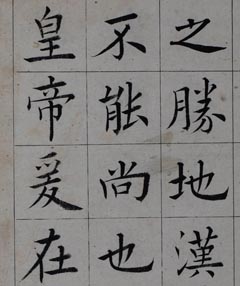 之勝地漢
不能尚也
皇帝爰在